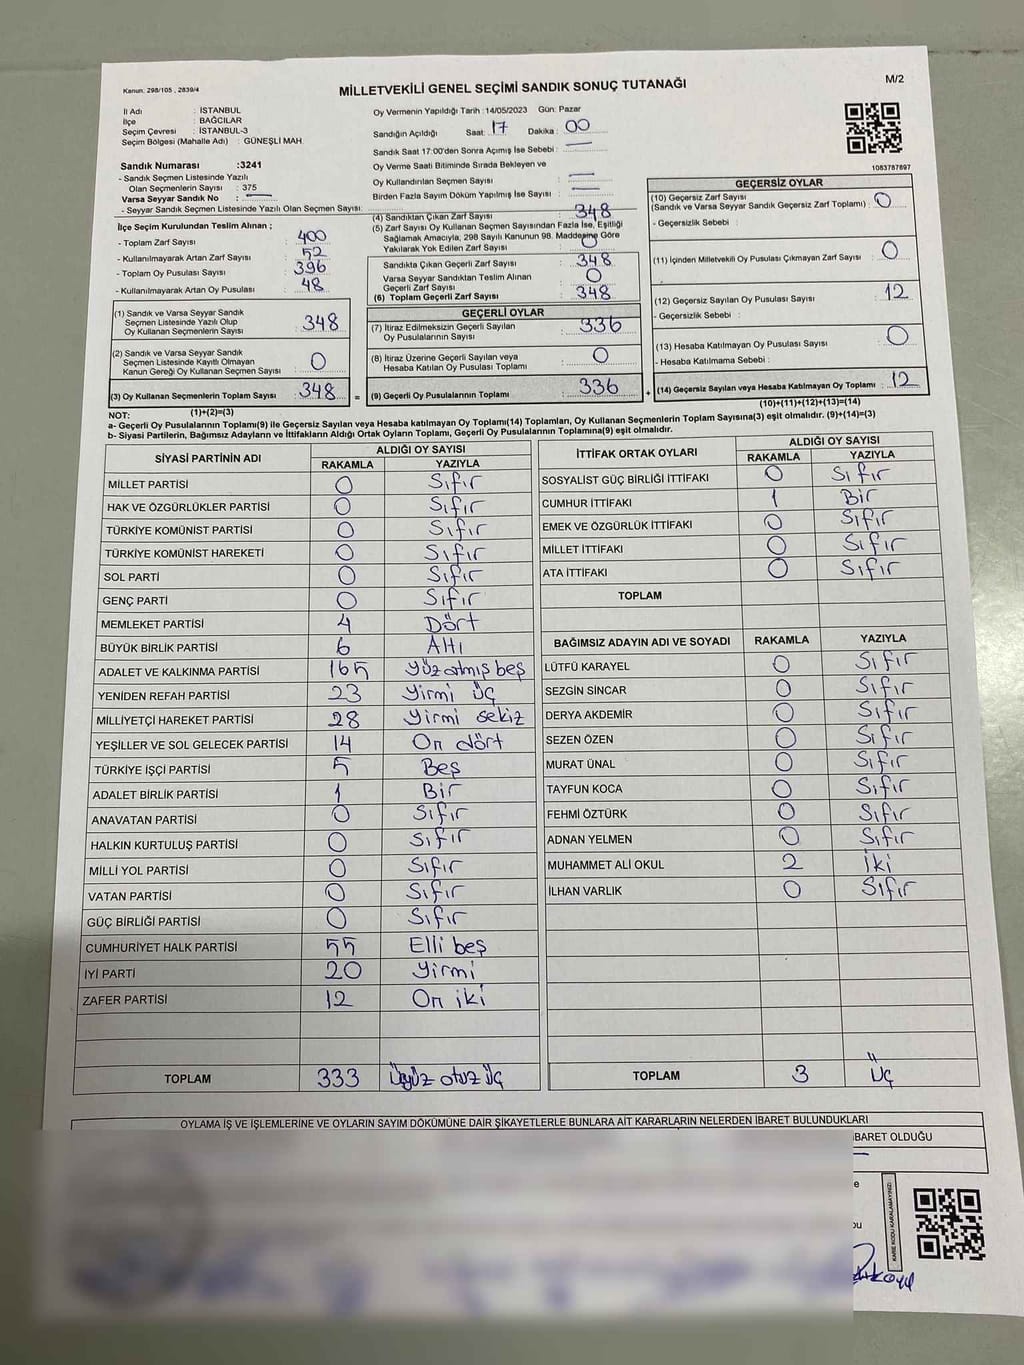 Kanun. 298/105 , 2839/4
MİLLETVEKİLİ GENEL SEÇİMİ SANDIK SONUÇ TUTANAĞI
M/2
İl Adı : İSTANBUL
İlçe : BAĞCILAR
Seçim Çevresi : İSTANBUL-3
Seçim Bölgesi (Mahalle Adı) : GÜNEŞLİ MAH.
Oy Vermenin Yapıldığı Tarih :14/05/2023 Gün: Pazar
Sandığın Açıldığı Saat: 17 Dakika : 00
Sandık Saat 17:00'den Sonra Açımış İse Sebebi : —
Oy Verme Saati Bitiminde Sırada Bekleyen ve
Oy Kullandırılan Seçmen Sayısı : —
Birden Fazla Sayım Döküm Yapılmış İse Sayısı : —
1083787897
Sandık Numarası :3241
- Sandık Seçmen Listesinde Yazılı
Olan Seçmenlerin Sayısı : 375
Varsa Seyyar Sandık No : —
- Seyyar Sandık Seçmen Listesinde Yazılı Olan Seçmen Sayısı: —
İlçe Seçim Kurulundan Teslim Alınan ;
- Toplam Zarf Sayısı : 400
- Kullanılmayarak Artan Zarf Sayısı : 52
- Toplam Oy Pusulası Sayısı : 396
- Kullanılmayarak Artan Oy Pusulası : 48
(1) Sandık ve Varsa Seyyar Sandık
Seçmen Listesinde Yazılı Olup
Oy Kullanan Seçmenlerin Sayısı : 348
(2) Sandık ve Varsa Seyyar Sandık
Seçmen Listesinde Kayıtlı Olmayan
Kanun Gereği Oy Kullanan Seçmen Sayısı : 0
(3) Oy Kullanan Seçmenlerin Toplam Sayısı : 348
(1)+(2)=(3)
(4) Sandıktan Çıkan Zarf Sayısı : 348
(5) Zarf Sayısı Oy Kullanan Seçmen Sayısından Fazla İse, Eşitliği
Sağlamak Amacıyla, 298 Sayılı Kanunun 98. Maddesine Göre
Yakılarak Yok Edilen Zarf Sayısı : 0
Sandıkta Çıkan Geçerli Zarf Sayısı : 348
Varsa Seyyar Sandıktan Teslim Alınan
Geçerli Zarf Sayısı : 0
(6) Toplam Geçerli Zarf Sayısı : 348
GEÇERLİ OYLAR
(7) İtiraz Edilmeksizin Geçerli Sayılan
Oy Pusulalarının Sayısı : 336
(8) İtiraz Üzerine Geçerli Sayılan veya
Hesaba Katılan Oy Pusulası Toplamı : 0
= (9) Geçerli Oy Pusulalarının Toplamı : 336 +
GEÇERSİZ OYLAR
(10) Geçersiz Zarf Sayısı
(Sandık ve Varsa Seyyar Sandık Geçersiz Zarf Toplamı) : 0
- Geçersizlik Sebebi :
(11) İçinden Milletvekili Oy Pusulası Çıkmayan Zarf Sayısı : 0
(12) Geçersiz Sayılan Oy Pusulası Sayısı : 12
- Geçersizlik Sebebi :
(13) Hesaba Katılmayan Oy Pusulası Sayısı : 0
- Hesaba Katılmama Sebebi :
(14) Geçersiz Sayılan veya Hesaba Katılmayan Oy Toplamı : 12
(10)+(11)+(12)+(13)=(14)
NOT:
a- Geçerli Oy Pusulalarının Toplamı(9) ile Geçersiz Sayılan veya Hesaba katılmayan Oy Toplamı(14) Toplamları, Oy Kullanan Seçmenlerin Toplam Sayısına(3) eşit olmalıdır. (9)+(14)=(3)
b- Siyasi Partilerin, Bağımsız Adayların ve İttifakların Aldığı Ortak Oyların Toplamı, Geçerli Oy Pusulalarının Toplamına(9) eşit olmalıdır.
SİYASİ PARTİNİN ADI ALDIĞI OY SAYISI
RAKAMLA YAZIYLA
MİLLET PARTİSİ 0 Sıfır
HAK VE ÖZGÜRLÜKLER PARTİSİ 0 Sıfır
TÜRKİYE KOMÜNİST PARTİSİ 0 Sıfır
TÜRKİYE KOMÜNİST HAREKETİ 0 Sıfır
SOL PARTİ 0 Sıfır
GENÇ PARTİ 0 Sıfır
MEMLEKET PARTİSİ 4 Dört
BÜYÜK BİRLİK PARTİSİ 6 Altı
ADALET VE KALKINMA PARTİSİ 165 Yüz atmış beş
YENİDEN REFAH PARTİSİ 23 Yirmi üç
MİLLİYETÇİ HAREKET PARTİSİ 28 Yirmi sekiz
YEŞİLLER VE SOL GELECEK PARTİSİ 14 On dört
TÜRKİYE İŞÇİ PARTİSİ 5 Beş
ADALET BİRLİK PARTİSİ 1 Bir
ANAVATAN PARTİSİ 0 Sıfır
HALKIN KURTULUŞ PARTİSİ 0 Sıfır
MİLLİ YOL PARTİSİ 0 Sıfır
VATAN PARTİSİ 0 Sıfır
GÜÇ BİRLİĞİ PARTİSİ 0 Sıfır
CUMHURİYET HALK PARTİSİ 55 Elli beş
İYİ PARTİ 20 Yirmi
ZAFER PARTİSİ 12 On iki
TOPLAM 333 Üçyüz otuz üç
İTTİFAK ORTAK OYLARI ALDIĞI OY SAYISI
RAKAMLA YAZIYLA
SOSYALİST GÜÇ BİRLİĞİ İTTİFAKI 0 Sıfır
CUMHUR İTTİFAKI 1 Bir
EMEK VE ÖZGÜRLÜK İTTİFAKI 0 Sıfır
MİLLET İTTİFAKI 0 Sıfır
ATA İTTİFAKI 0 Sıfır
TOPLAM
BAĞIMSIZ ADAYIN ADI VE SOYADI RAKAMLA YAZIYLA
LÜTFÜ KARAYEL 0 Sıfır
SEZGİN SİNCAR 0 Sıfır
DERYA AKDEMİR 0 Sıfır
SEZEN ÖZEN 0 Sıfır
MURAT ÜNAL 0 Sıfır
TAYFUN KOCA 0 Sıfır
FEHMİ ÖZTÜRK 0 Sıfır
ADNAN YELMEN 0 Sıfır
MUHAMMET ALİ OKUL 2 İki
İLHAN VARLIK 0 Sıfır
TOPLAM 3 Üç
OYLAMA İŞ VE İŞLEMLERİNE VE OYLARIN SAYIM DÖKÜMÜNE DAİR ŞİKAYETLERLE BUNLARA AİT KARARLARIN NELERDEN İBARET BULUNDUKLARI
İBARET OLDUĞU
KARE KODU KARALAMAYINIZ